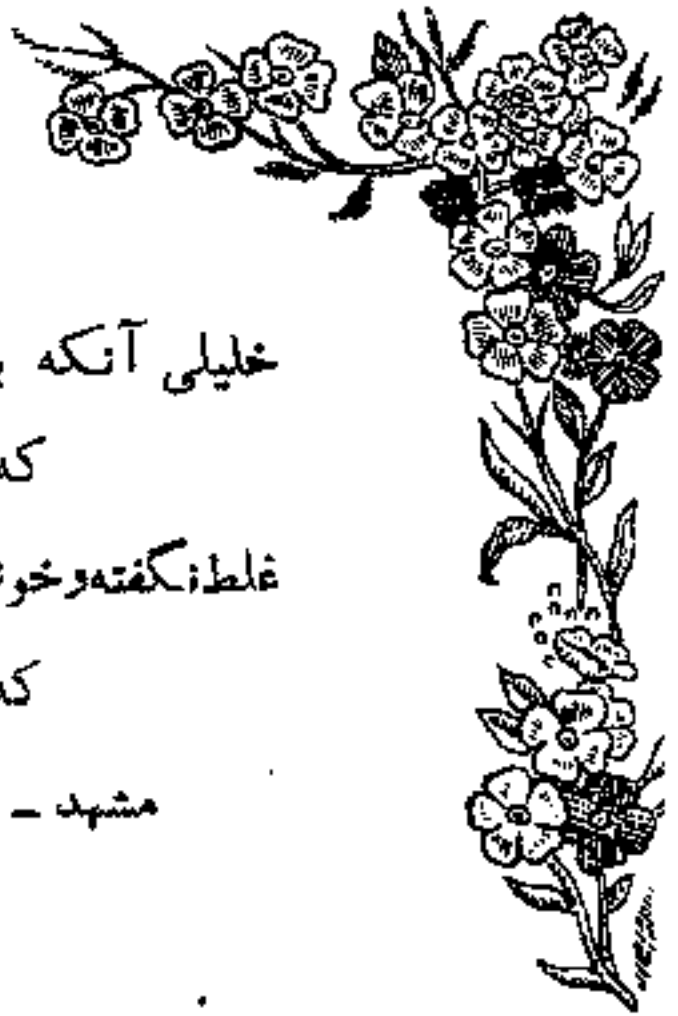 خلیلی آنکه
که
غلط نگفته و خو
که
مشهد -